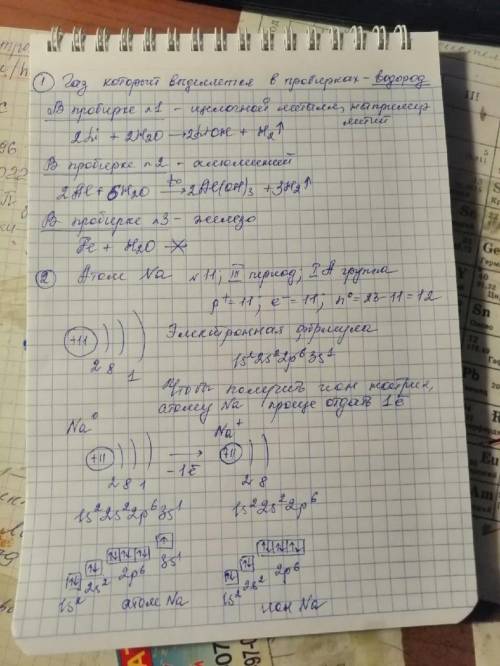 1 Газ который выделяется в пробирках - водород
В пробирке №1 - щелочной металл, например
литий
2Li + 2H2O → 2LiOH + H2↑
В пробирке №2 - алюминий
2Al + 6H2O →t° 2Al(OH)3 + 3H2↑
В пробирке №3 - железо
Fe + H2O ↛
2 Атом Na №11; III период; I A группа
p+ = 11; e- = 11; n° = 23-11 = 12
+11 ) ) ) Электронная формула
2 8 1 1s²2s²2p⁶3s¹
Чтобы получить ион натрия,
атому Na проще отдать 1ē
Na⁰ Na⁺
+11 ) ) ) → +11 ) )
2 8 1 -1ē 2 8
1s²2s²2p⁶3s¹ 1s²2s²2p⁶
↑↓ ↑↓ ↑↓ ↑↓ ↑↓ ↑ ↑↓ ↑↓ ↑↓ ↑↓ ↑↓
1s² 2s² 2p⁶ 3s¹ 1s² 2s² 2p⁶
атом Na ион Na
III
In
Sn
Pb